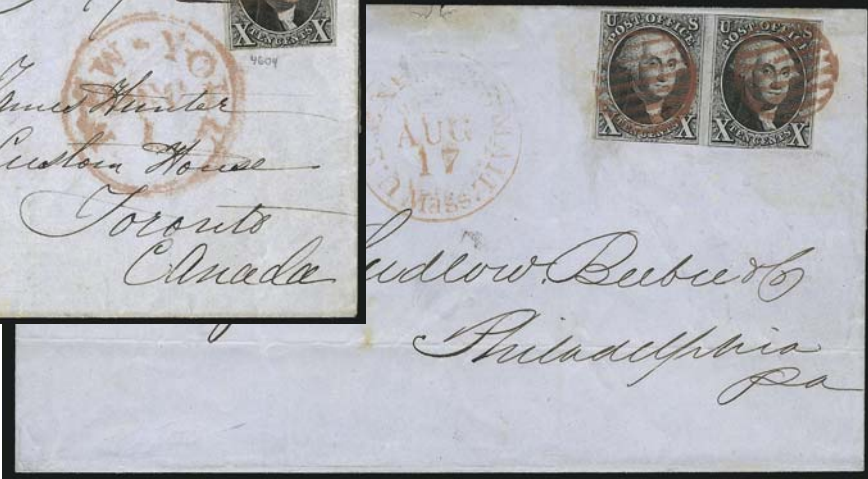 X TEN CENTS X
4604
NEW-YORK
1
James Hunter
Custom House
Toronto
Canada
U POST OFFICE S
X TEN CENTS X
U POST OFFICE S
X TEN CENTS X
AUG
17
Mass.
Ludlow. Beebee & Co
Philadelphia
Pa